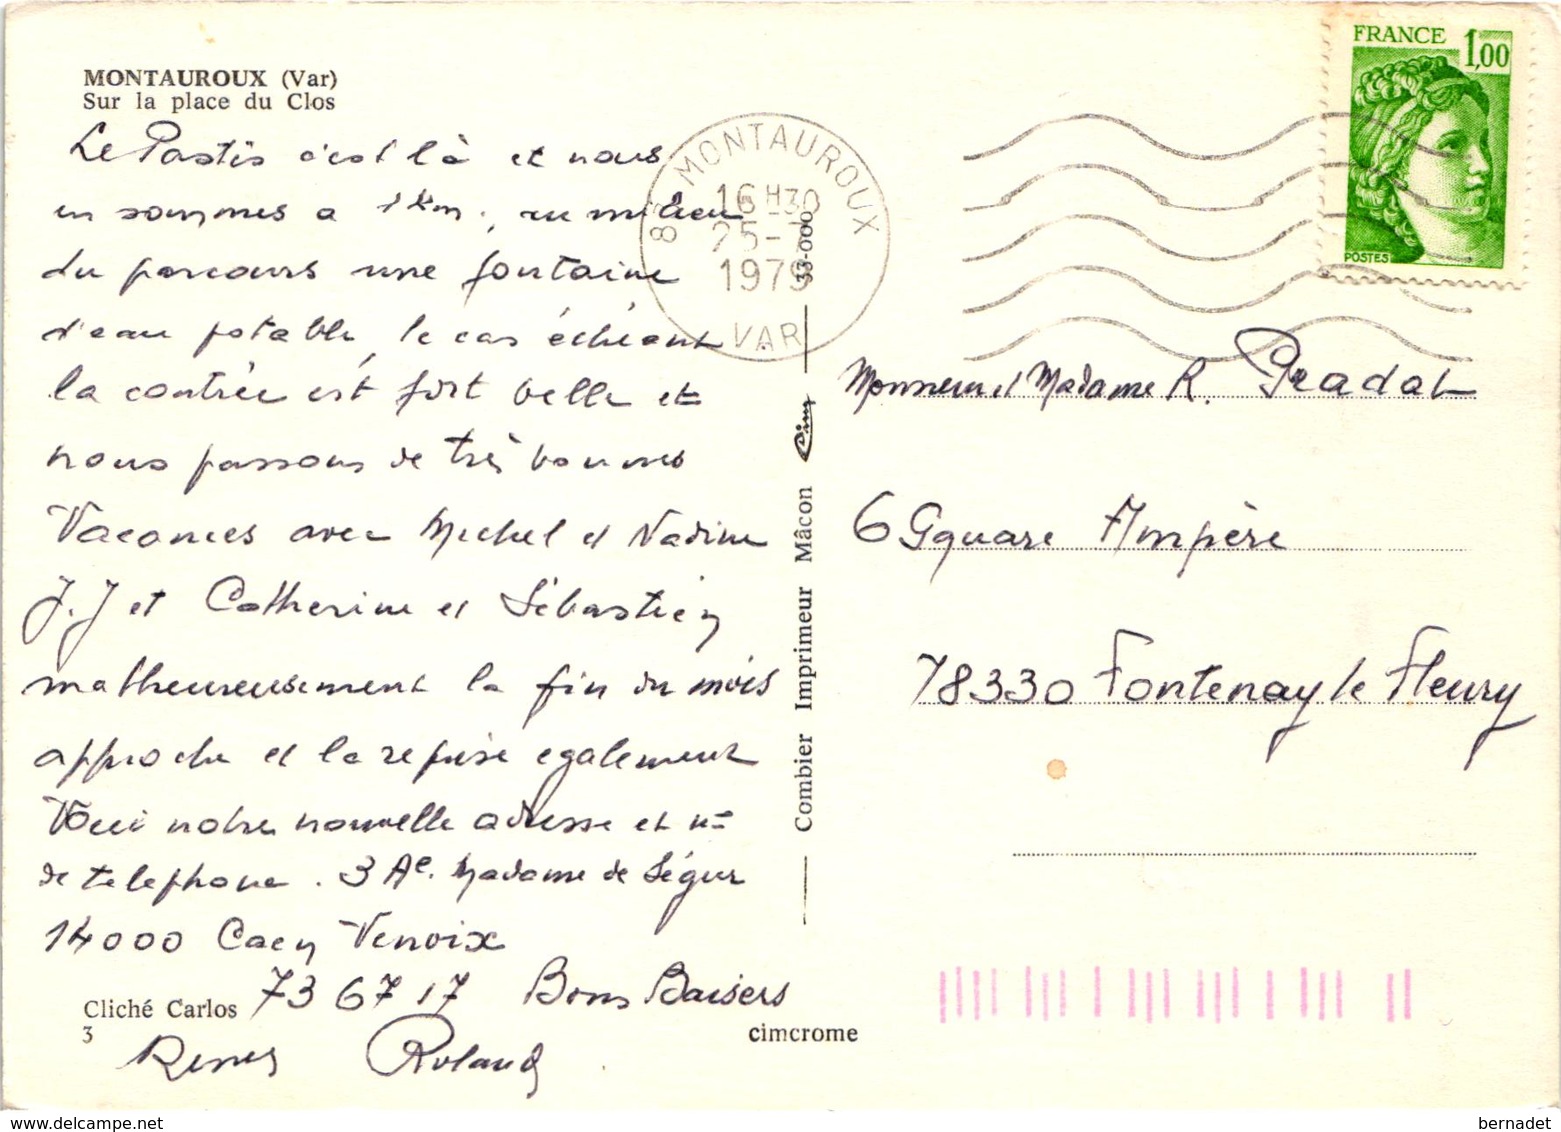 MONTAUROUX (Var)
Sur la place du Clos
Le Pastis c'est là et nous
en sommes a 1 km, au milieu
du parcours une fontaine
d'eau potable, le cas échéant
la contrée est fort belle et
nous passons de très bonnes
Vacances avec Michel et Nadine
J.J et Catherine et Sébastien
malheureusement la fin du mois
approche et la reprise egalement
Voici notre nouvelle adresse et n°
de telephone. 3 Ae. Madame de Ségur
14000 Caen Venoix
73 67 17 Bons Baisers
Roland
Cliché Carlos
3
cimcrome
Combier Imprimeur Mâcon
Cim
33-000
83 MONTAUROUX
16 H30
25-7
1979
VAR
FRANCE 1,00
POSTES
Monsieur et Madame R. Pradal
6 Square Ampère
78330 Fontenay le Fleury
bernadet